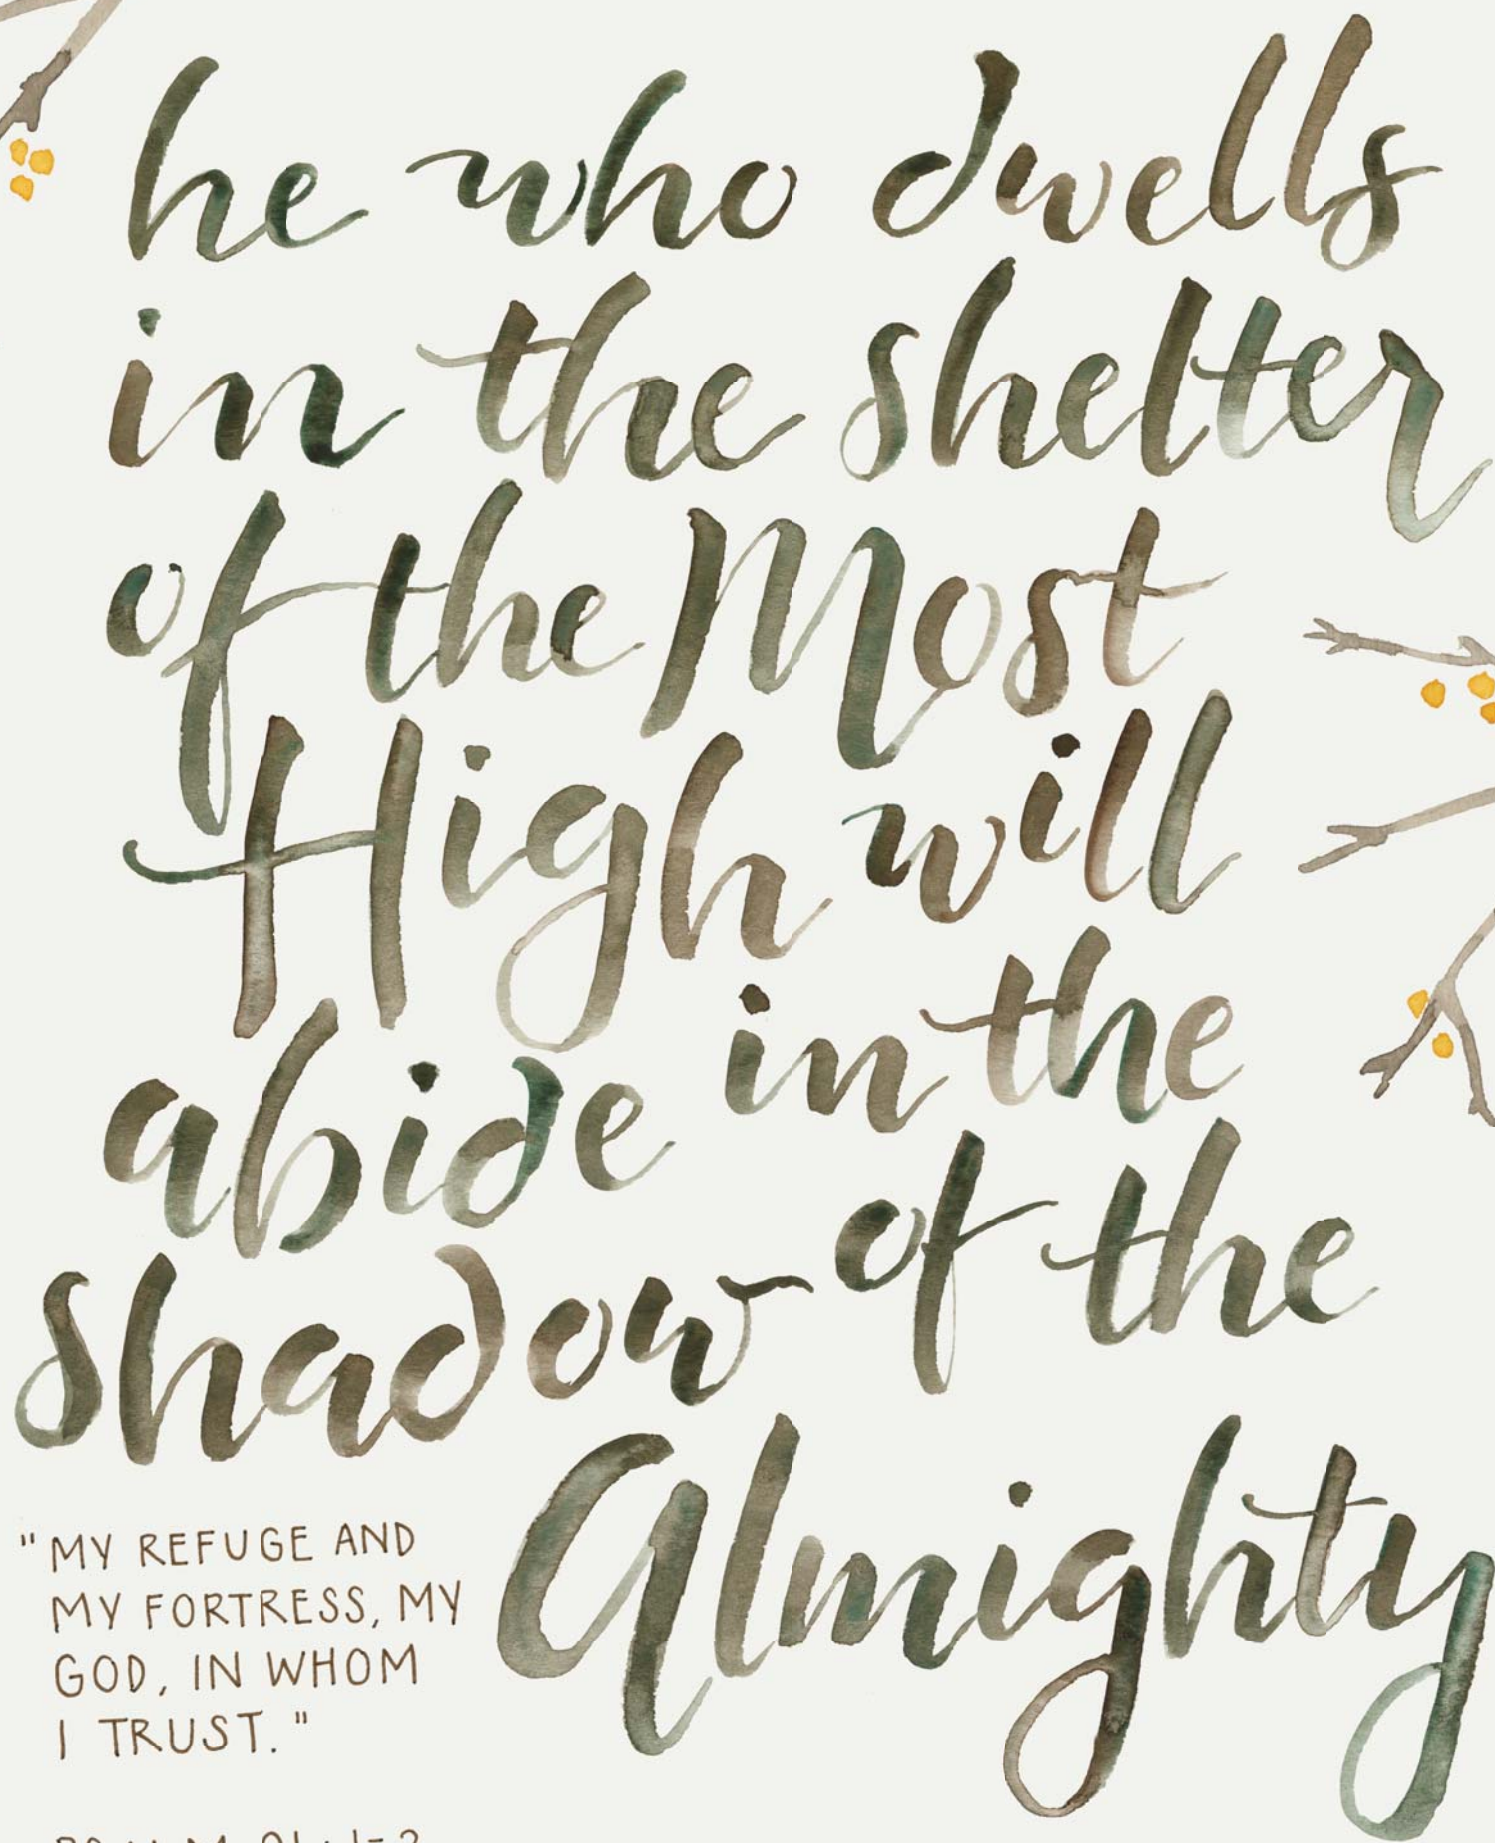 he who dwells
in the shelter
of the Most
High will
abide in the
shadow of the
Almighty
"MY REFUGE AND
MY FORTRESS, MY
GOD, IN WHOM
I TRUST."